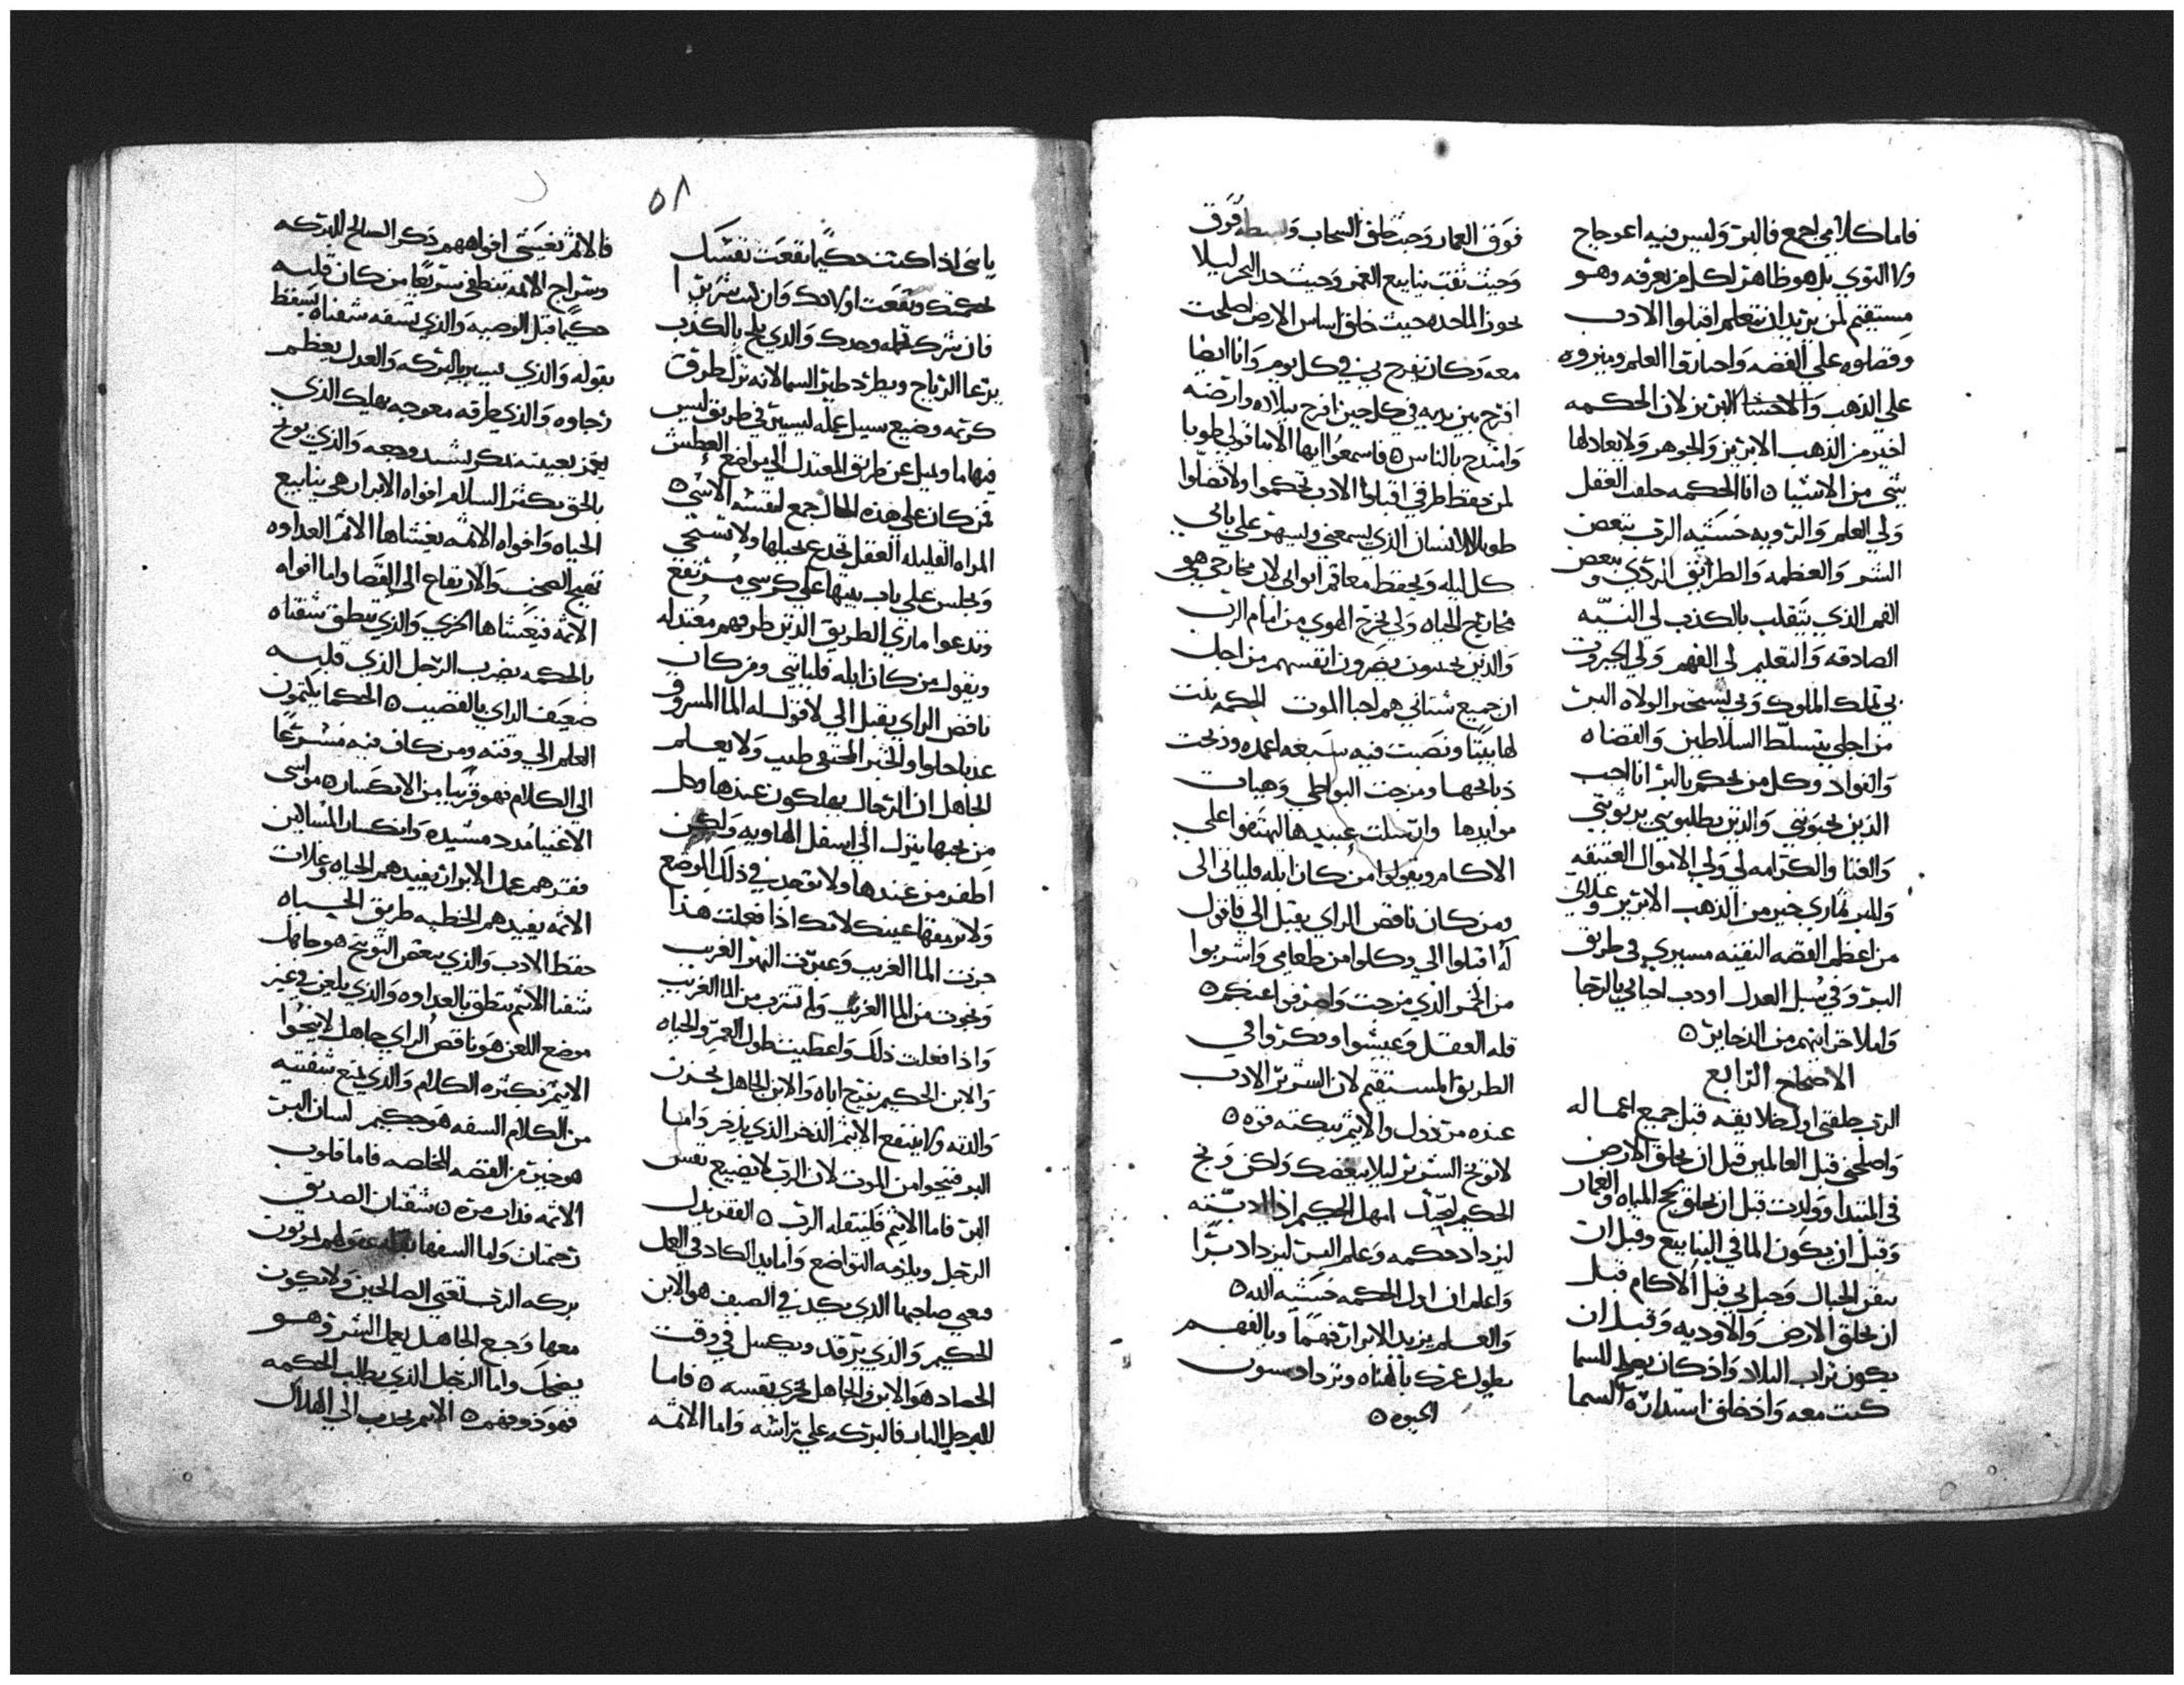 فاما كلامي اجمع فالبر وليس فيه اعوجاج
ولا التوي بل هو ظاهر لكل من يعرفه وهو
مستقيم لمن يريد ان يتعلم اقبلوا الادب
وفضلوه علي الفضه واختاروا العلم وميزوه
علي الذهب الابريز لان الحكمه
اخير من الذهب الابريز والجوهر ولا يعادلها
شي من الاشيا ٥ انا الحكمه خلقت العقل
ولي العلم والرويه خشيه الرب تبغض
الشر والعظمه والطرايق الردي وبغض
الفم الذي يتقلب بالكذب لي النيه
الصادقه والتعليم لي الفهم ولي الجبروت
بي تملك الملوك وبي يستخبر الولاه البر
من اجلي يتسلط السلاطين والقضاه
والقواد وكل من يحكم بالبر انا احب
الذين يحبوني والذين يطلبوني يريوني
والغنا والكرامه لي ولي الاموال العتيقه
والبر ثماري خير من الذهب الابريز وغلاتي
من اعظم الفضه النقيه مسيري في طريق
البر وفي سبل العدل اودب احباي بالرجا
واملا خزاينهم من الدخاير ٥
الاصحاح الرابع
الرب خلقني اول خلايقه قبل جميع اعماله
واصلحني قبل العالمين قبل ان يخلق الارض
في المبتدا وولدت قبل ان يخلق لجج المياه والغمار
وقبل ان يكون الما في الينابيع وقبل ان
يتقن الجبال وحبل بي قبل الاكام قبل
ان يخلق الارض والاوديه وقبل ان
يكون تراب البلاد واذ كان يصلح السما
كنت معه واذ خلق استداره السما
فوق الغمار وحيث خلق السحاب وبسطه فوق
وحيث ثقب ينابيع الغمر وحيث حد البحر ليلا
يجوز الما حده حيث خلق اساس الارض اصلحت
معه وكان يفرح بي في كل يوم وانا ايضا
افرح بين يديه في كل حين افرح ببلاده وارضه
وامتدح بالناس ٥ فاسمعوا ايها الابنا قولي طوبا
لمن حفظ طرقي اقبلوا الادب تحكموا ولا تضلوا
طوبا للانسان الذي يسمعني ويسهر علي بابي
كل ليله ويحفظ معاقم ابوابي لان مخارجي هي
مخارج الحياه ولي يخرج الهوي من امام الرب
والذين يحسون يضرون انفسهم من اجل
ان جميع شناتي هم احبا الموت الحكمه بنت
لها بيتا ونصبت فيه سبعه اعمده وذبحت
ذبايحها ومزجت البواطي وهيات
موايدها وارسلت عبيدها ليهتفوا علي
الاكام ويقولوا من كان ابله فلياتي الى
ومن كان ناقص الراي يقبل الي فاقول
له اقبلوا الي وكلوا من طعامي واشربوا
من الخمر الذي مزجت واصرفوا عنكم ٥
قله العقل وعيشوا وفكروا في
الطريق المستقيم لان الشرير الادب
عنده مرذول والاثيم تبكته قوه ٥
لا توبخ الشرير ليلا يبغضك ولكن وبخ
الحكيم ليحبك امهل الحكيم اذا ادبته
ليزداد حكمه وعلم البر ليزداد برا
واعلم ان اول الحكمه خشيه الله ٥
والعلم يزيد الابرار فهما وبالفهم
يطول عمرك بالهناه وتزداد سنون
الحيوه ٥
٥٨
يا بني اذا كنت حكيما نفعت نفسك
بحكمتك ونفعت اولادك وان كنت شريرا
فان شرك تحمله وحدك والذي يلج بالكذب
يرعا الرياح ويطرد طير السما لانه ترك طرق
كرمه وضيع سبيل عمله ليسير في طريق ليس
فيها ما ويميل عن طريق المعتدل الي مواضع العطش
فمن كان علي هذه الحال جمع لنفسه الاشي ٥
المراه القليله العقل تخدع بحيلها ولا تستحي
وتجلس علي باب بيتها علي كرسي مرتفع
وتدعوا ماري الطريق الذين طرقهم معتدله
وتقول من كان ابله فلياتيني ومن كان
ناقص الراي يقبل الي لاقول له الما المسروق
عذبا حلوا والخبز المختفي طيب ولا يعلم
الجاهل ان الرجال يهلكون عندها وكل
من يحبها ينزل الي اسفل الهاويه ولكن
اطفر من عندها ولا توجد في ذلك الموضع
ولا ترمقها عينك لانك اذا فعلت هذا
جزت الما الغريب وعبرت النهر الغريب
وتجوت من الما الغريب ولم تشرب من الما الغريب
واذا فعلت ذلك واعطيت طول العمر والحياه
والابن الحكيم يفرح اباه والابن الجاهل يحزن
والدته ولا ينتفع الاثيم الذخر الذي يذخر واما
البر فينجوا من الموت لان الرب لا يضيع نفس
البر فاما الاثيم فلينتقله الرب ٥ الفقر يذل
الرجل ويلزمه التواضع واما يد الكاد في العمل
فهي صاحبها الذي يكد في الصيف هو الابن
الحكيم والذي يرقد ويكسل في وقت
الحصاد هو الابن الجاهل يخزي بنفسه ٥ فاما
للرجل البار فالبركه علي راسه واما الائمه
فالاثم يغشي افواههم ذكر الصالح للبركه
وسراج الائمه ينطفي سريعا من كان قلبه
حكيما قبل الوصيه والذي يسفه شفتاه يسقط
بقوله والذي يسير بالبركه والعدل يعظم
رجاوه والذي طرقه معوجه يهلك الذي
يغمز بعينه يكسب وجعه والذي يوبخ
بالحق يكثر السلام افواه الابرار هي ينابيع
الحياه وافواه الائمه يغشاها الاثم العداوه
تهيج الصخب والارتفاع الى القضا واما افواه
الائمه فيغشاها الخزي والذي ينطق شفتاه
بالحكمه يضرب الرجل الذي قلبه
ضعيف الراي بالقضيب ٥ الحكما يكتمون
العلم الي وقته ومن كان فيه متسرعا
الي الكلام فهو قريبا من الانكسار ٥ مواسي
الاغنيا مدد مشيده وانكسار المساكين
فقرهم عمل الابرار يفيدهم الحياه وغلات
الائمه يفيدهم الخطيه طريق الحياه
حفظ الادب والذي يبغض التوبيخ هو جاهل
شفتا الاثيم ينطق بالعداوه والذي يلعن في غير
موضع اللعن هو ناقص الراي جاهل لا ينجوا
الاثيم بكثره الكلام والذي يمنع شفتيه
من الكلام السفه هو حكيم لسان البر
هو خير من الفضه المخلصه فاما قلوب
الائمه فدات مره ٥ شفتان الصديق
رحمتان واما السفها عقولهم يموتون
بركه الرب تغني الصالحين ولا يكون
معها وجع الجاهل يعمل الشر وهو
يضحك واما الرجل الذي يطلب الحكمه
فهو ذو فهم ٥ الاثيم يجذب الي الهلاك